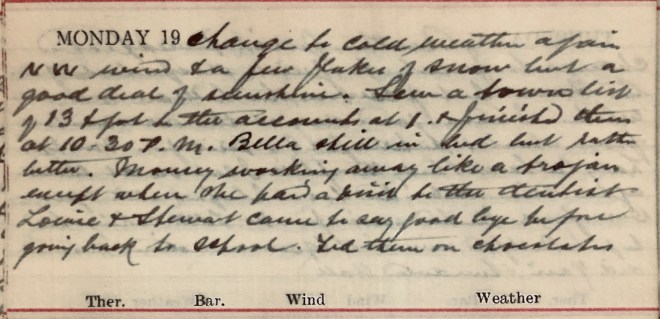 MONDAY 19 change to cold weather again
NW wind & a few flakes of snow but a
good deal of sunshine. Saw a town list
of 13 & got to the accounts at 1. & finished them
at 10-30 P.M. Bella still in bed but rather
better. Mousey working away like a trojan
except when she paid a visit to the dentist
Louie & Stewart came to say good bye before
going back to school. Fed them on chocolates
Ther. Bar. Wind Weather